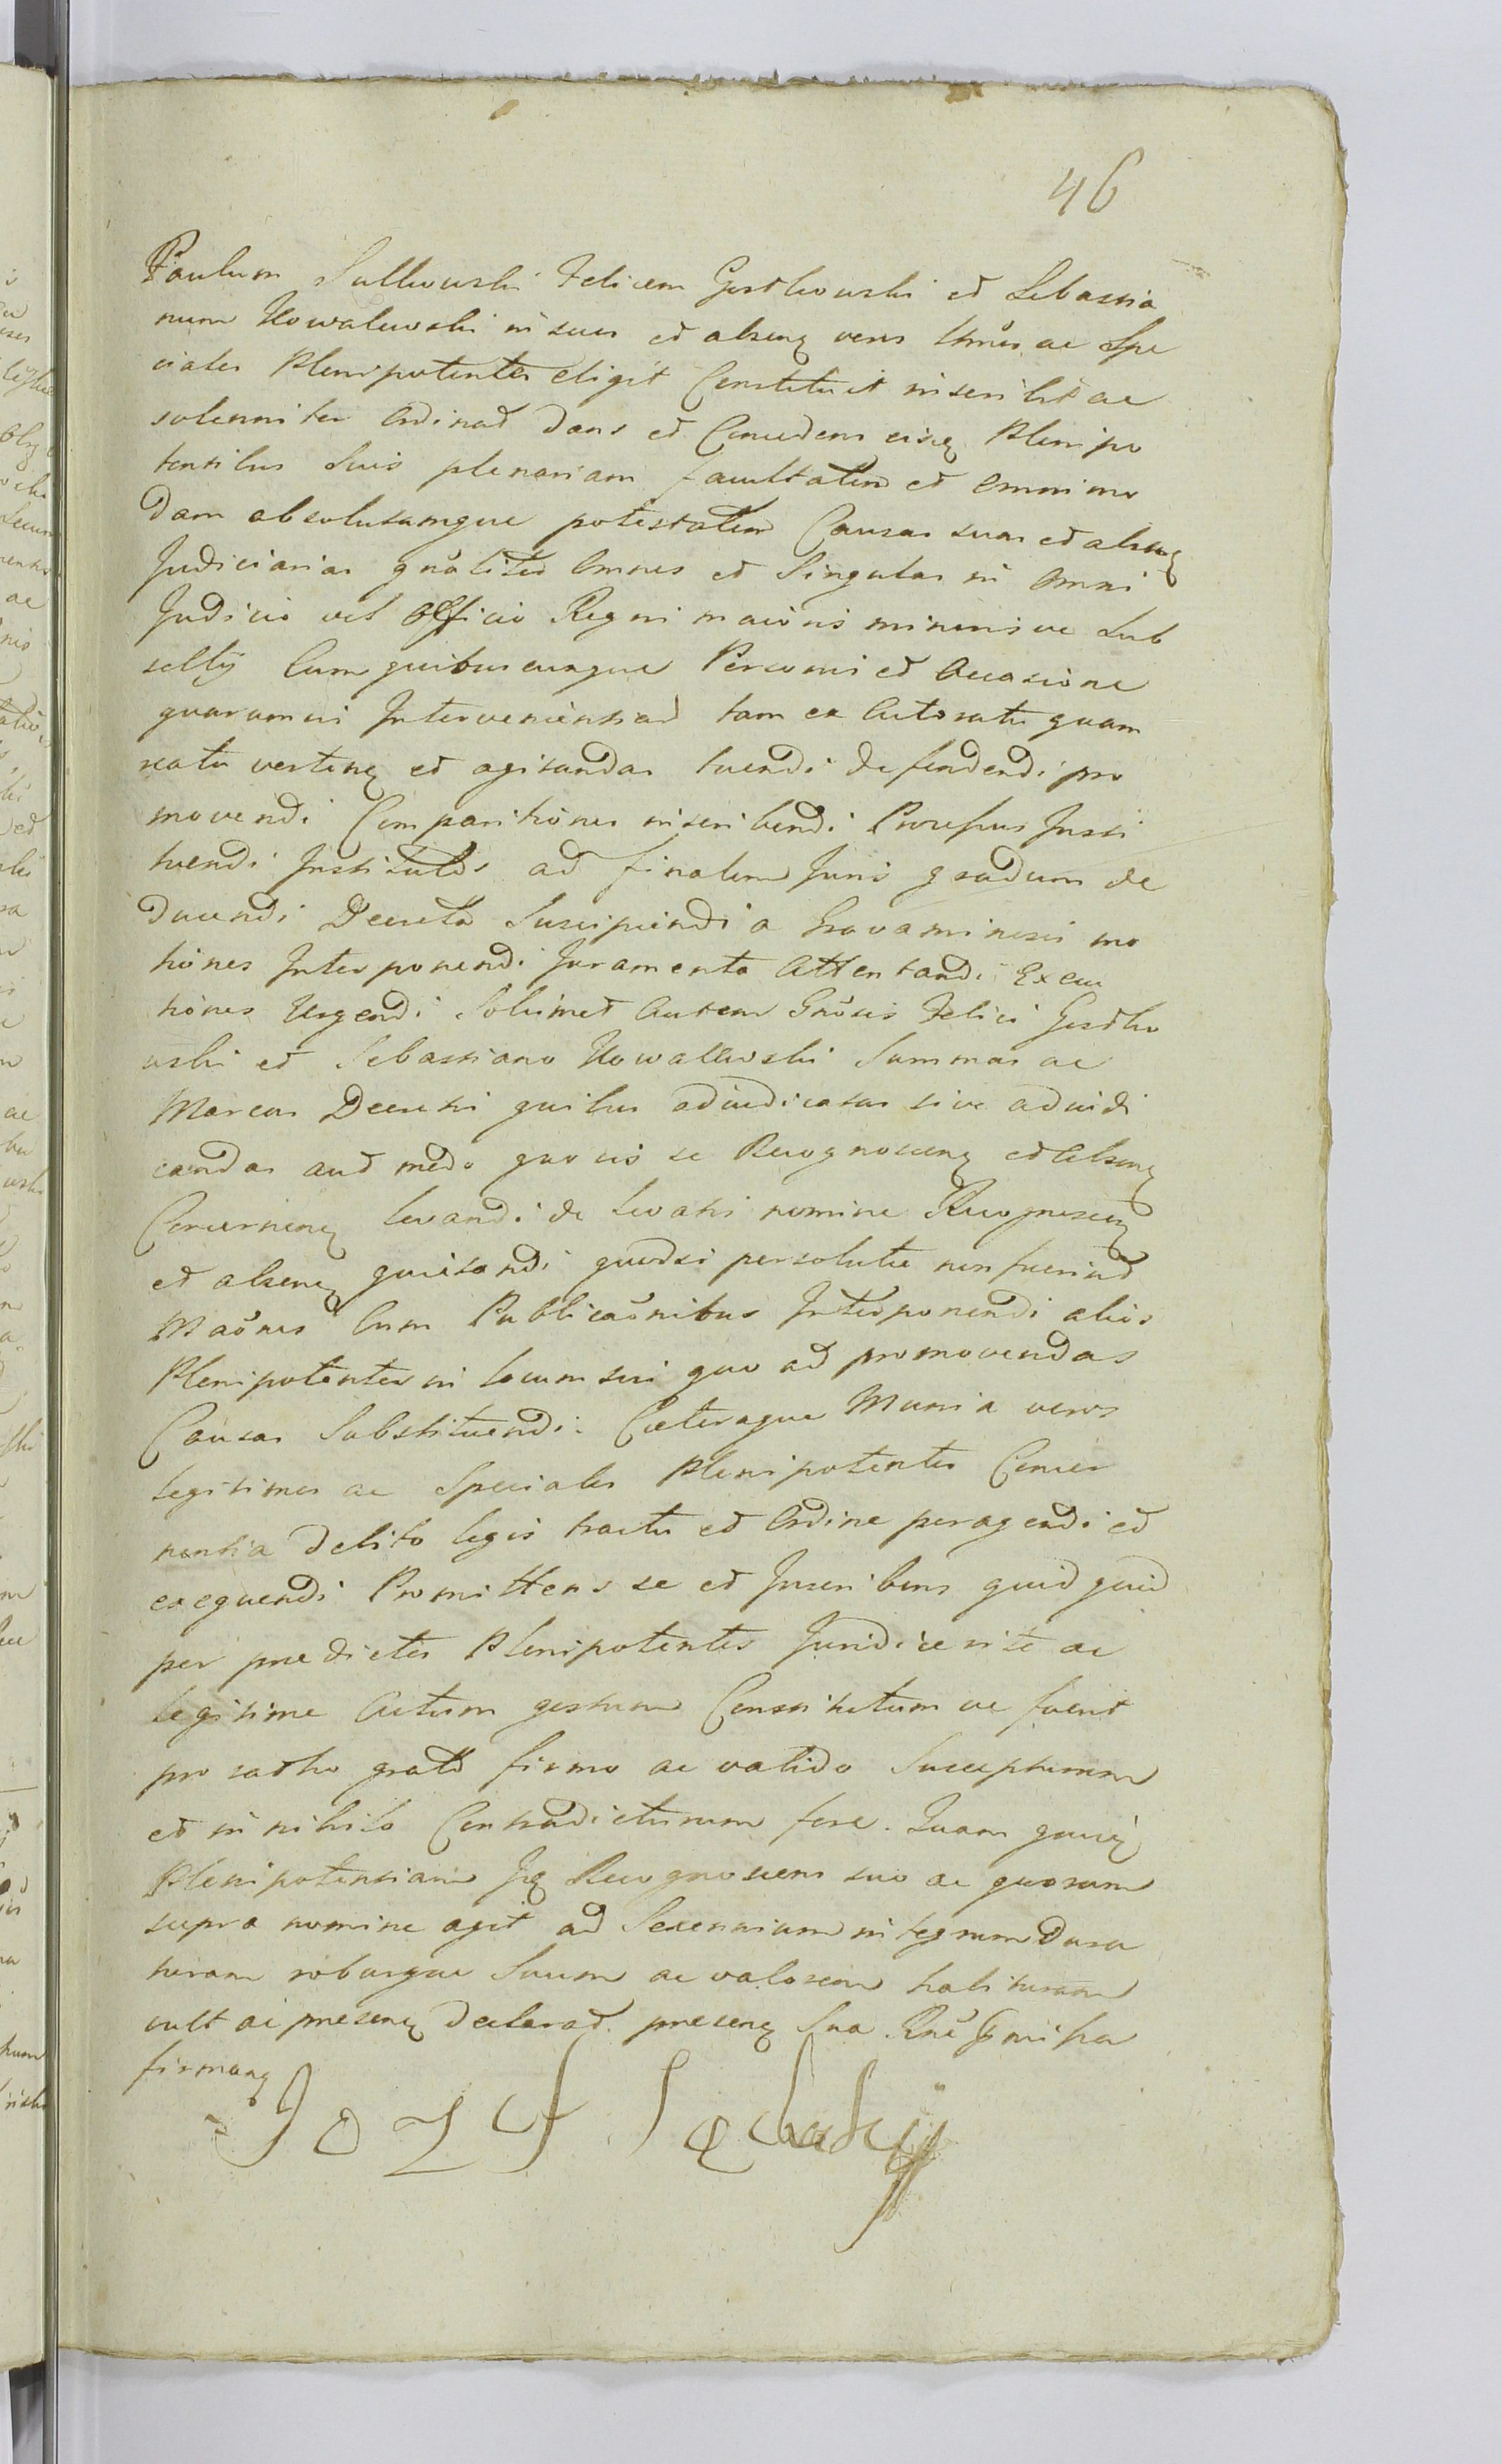 46
Paulum Sulkowski Felicem Gostkowski et Sebastia
num Kowalewski in suos et absenq veros ac Spe
ciales Plenipotentes eligit Constituit inscribit ac
solenniter Ordinat Dans et Concedens eisq Plenipo
tentibus Suis plenariam facultatem et Omnimo
dam absolutamque potestatem Causas suas et absenq
Judiciarias gnaliter Omnes et Singulas in Omni
Judicio vel Officio Regni maioris minorisve Sub
sellij Cum quibuscunque Personis et Occasione
quarumvis Interveniential tam ex Actoratu quam
reatu vertenq et agitandas tuendi defendendi pro
movendi Comparitiones inscribendi Processus Insti
tuendi Institutos ad finalem Juris gradum de
ducendi Decreta Suscipiendi a Gravaminosis mo
tiones Interponendi Juramenta Attentandi Execu
tiones Urgendi Solummet Autem Gnosis Felici Gostko
wski et Sebastiano Kowalewski Summas ac
Marcas Decreti quibus adiudicatas sive adiudi
candas aut modo quovis se Recognoscenq et Absenq
Concernenq levandi de levatis nomine Recognoscenq
et absenq quietandi quodsi persolutae non fuerint
Maönes Cum Publicaönibus Interponendi alios
Plenipotentes in locum sui quo ad promovendas
Causas Substituendi. Caeteraque Munia veros
legitimos ac Speciales Plenipotentes Concer
nentia debito legis tractu et Ordine peragendi et
exequendi Promittens se et Inscribens quidquid
per praedictos Plenipotentes Juridice rite ac
legitime Actum gestum Constitutumve fuerit
pro rato grato firmo ac valido Suscepturum
et in nihilo Contradicturum fore. Quam quid
Plenipotentiam Iq Recognoscens suo ac quorum
supra nomine agit ad Sexennium integrum Dura
turam roburque Suum ac valorem habituram
vult ac presenq declarat. presenq Sua
firmanq
Jozef